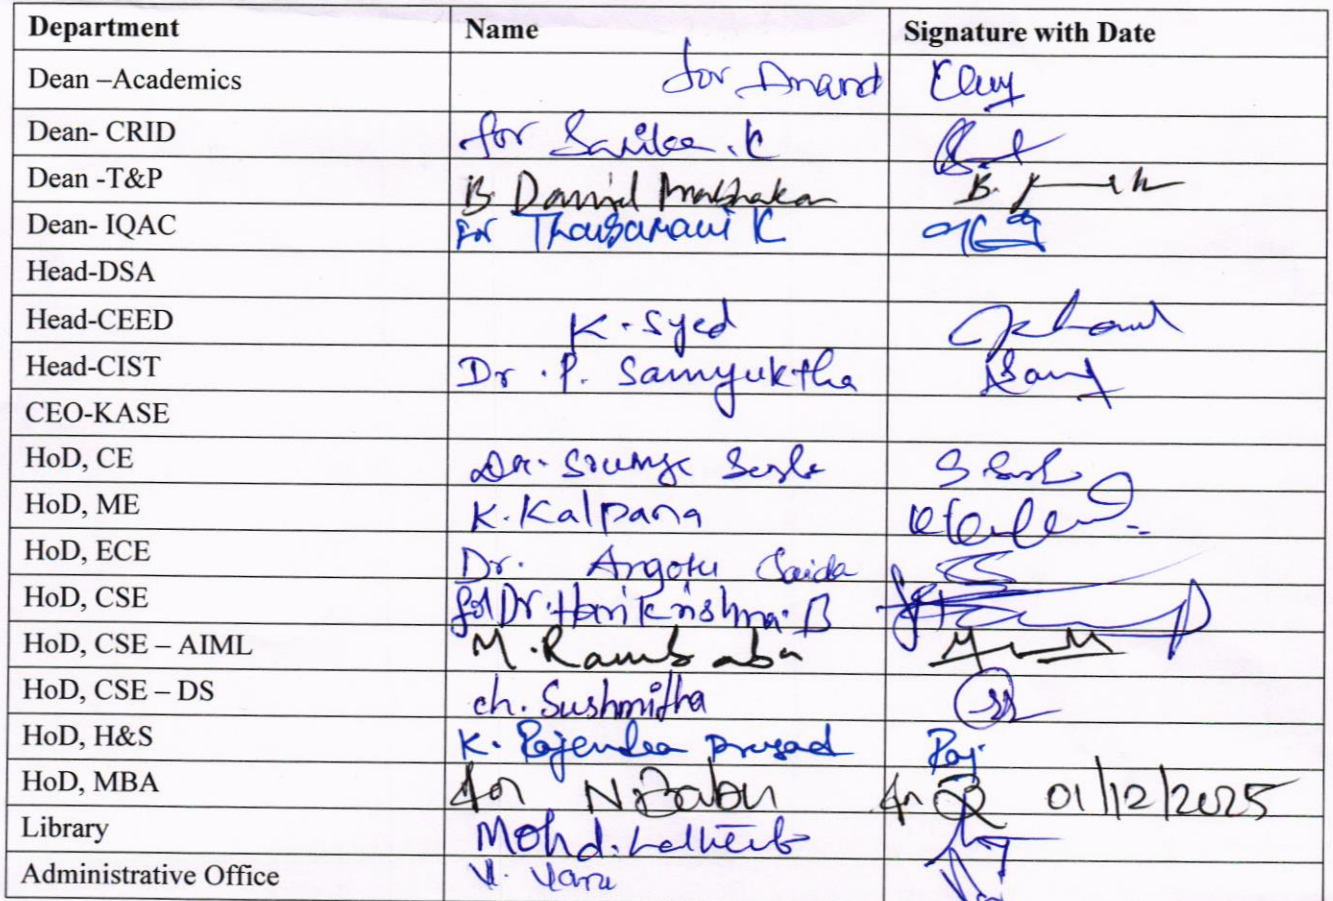 Department Name Signature with Date
Dean –Academics for Anand
Dean- CRID for Sarika. K
Dean -T&P B. Daniel Prabhakar B.
Dean- IQAC for K
Head-DSA
Head-CEED K. Syed
Head-CIST Dr. P. Samyuktha
CEO-KASE
HoD, CE
HoD, ME K. Kalpana
HoD, ECE Dr. Argotu Saida
HoD, CSE for Dr. Harikrishna. B
HoD, CSE – AIML M. Rambabu
HoD, CSE – DS ch. Sushmitha
HoD, H&S K. Rajendra prasad Raj
HoD, MBA for N Babu for 01/12/2025
Library Mohd.
Administrative Office